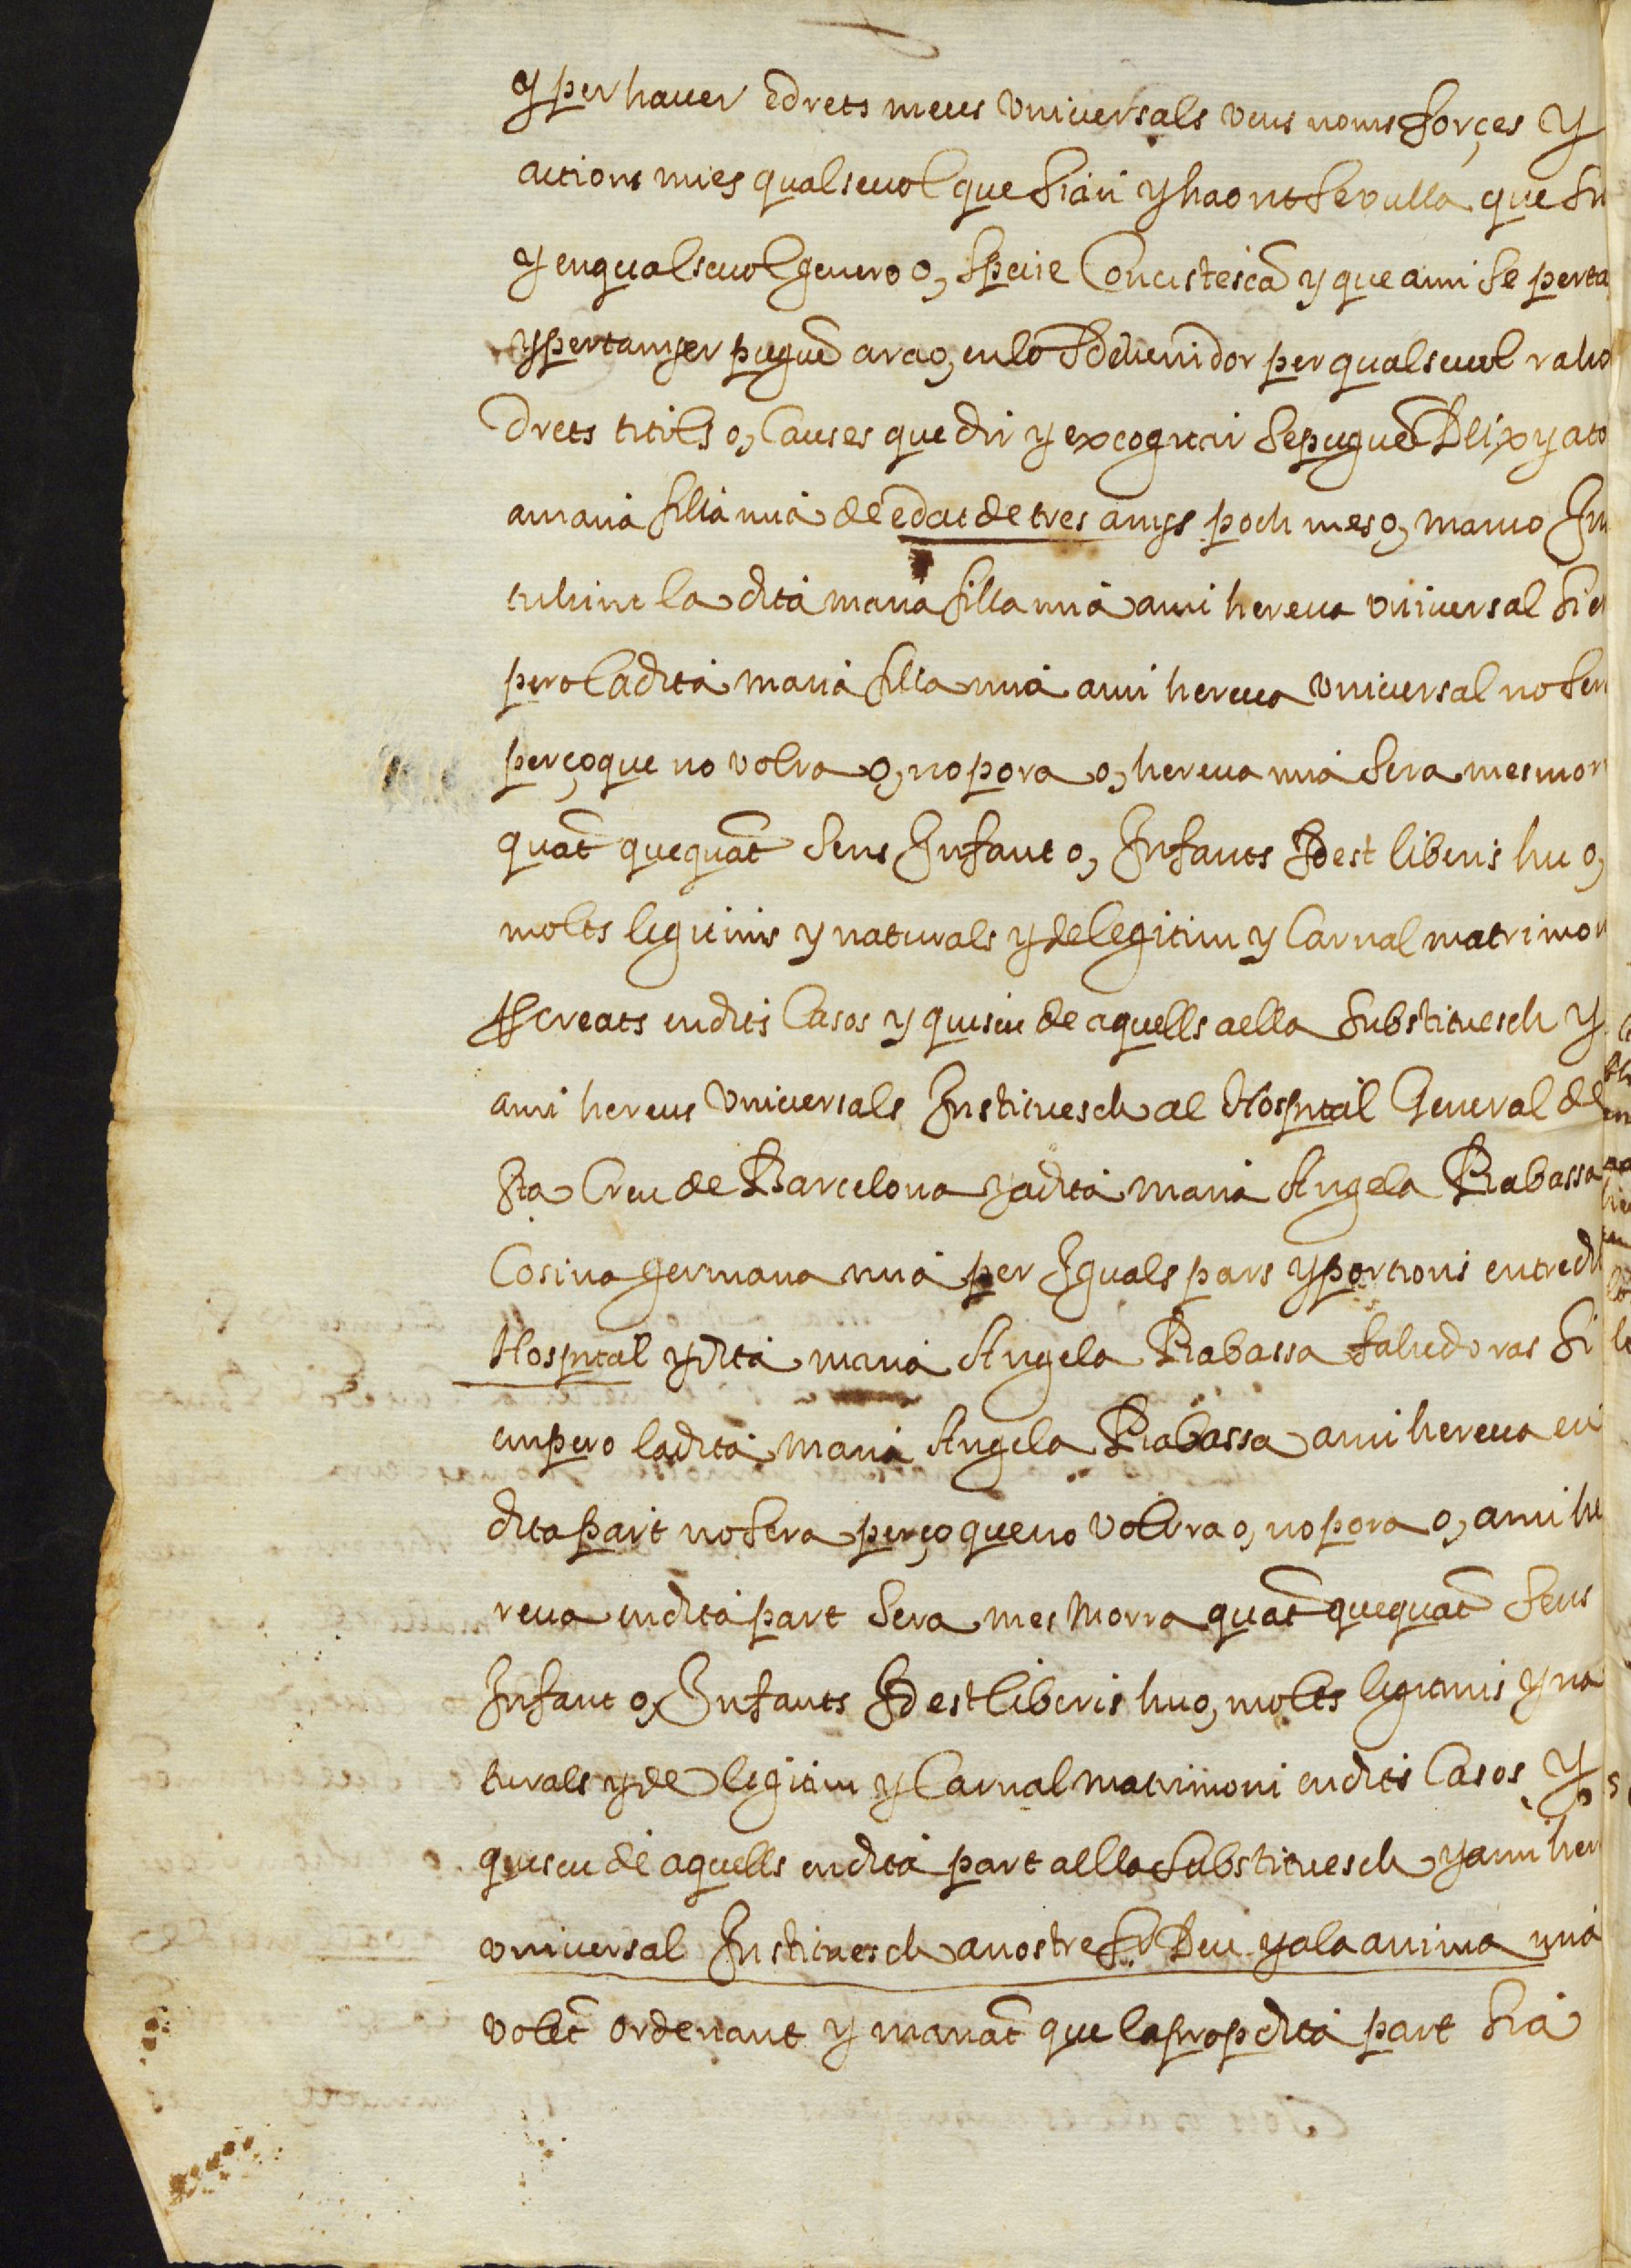 y per haver e drets meus universals veus noms forçes y
actions mies qualsevol que sian y hont se vulla que si
y en qualsevol genero o, specie Concistescã y que a mi se perta
y pertanyer puguẽ ara o, en lo Esdevenidor per qualsevol raho
drets titols o, Causes que dir y excogitar se puguẽ Deix y ato
a maria filla mia de edat de tres anys poch mes o, manco Ins
tuhint la dita maria filla mia a mi hereva universal Si em
pero la dita maria filla mia a mi hereva universal no ser
perço que no volra o, no pora o, hereva mia sera mes mor
quãt quequãt sens Infant o, Infants Id est liberis hu o,
molts legitims y naturals y de legitim y Carnal matrimon
creats en dits Casos y quiscu de aquells a ella substituesch y
a mi hereus universals Instituesch al Hospital General de
Sta Creu de Barcelona y a dita maria Angela Rabassa
Cosina germana mia per Iguals pars y portions entre dit
Hospital y dita maria Angela Rabassa fahedoras Si
empero la dita maria Angela Rabassa a mi hereva en
dita part no sera perço que no volrra o, no pora o, a mi he
reva en dita part sera mes Morra quãt quequãt sens
Infant o, Infants Id est liberis hu o, molts legitims y na
turals y de legitim y Carnal matrimoni en dits Casos y
quiscu de aquells en dita part a ella substituesch y a mi her
universal Instituesch a nostre Sr Deu y a la anima mia
volẽt ordenant y manãt que la propdita part sia